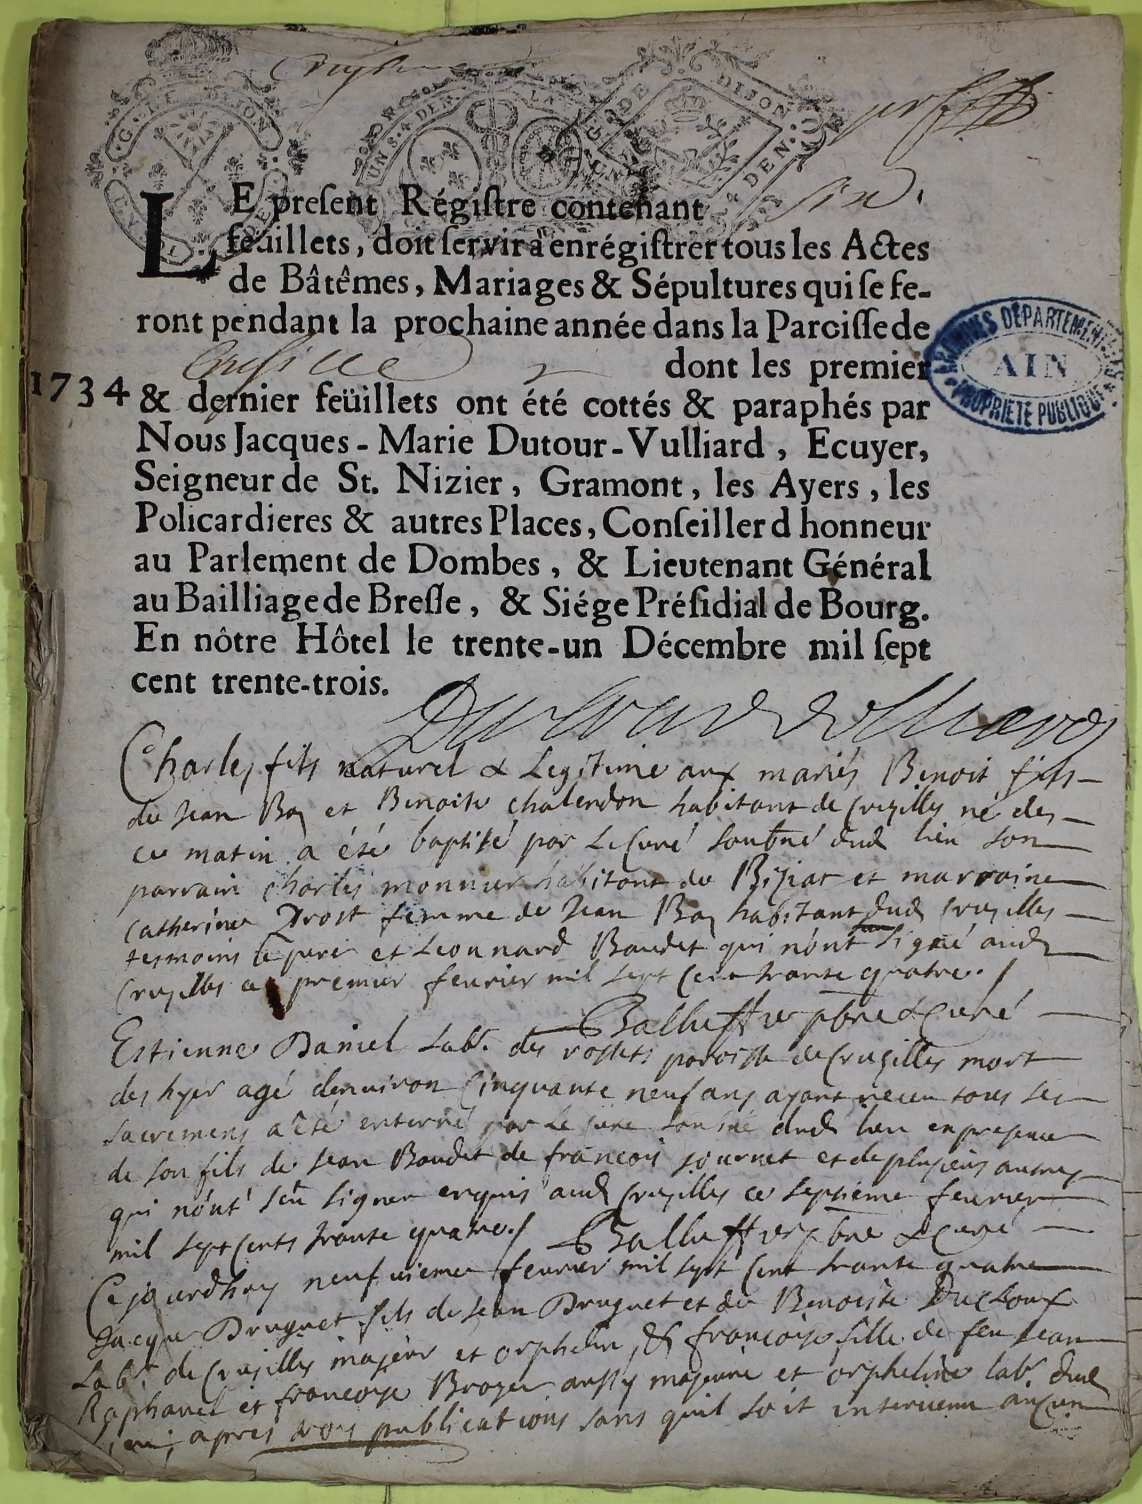 G. DE DIJON
UN S. 4 DEN.
G. DE DIJON
4 DEN.
six.
LE preſent Régiſtre contenant
feüillets, doit ſervir à enrégiſtrer tous les Actes
de Bâtêmes, Mariages & Sépultures qui ſe fe-
ront pendant la prochaine année dans la Paroiſſe de
dont les premier
1734 & dernier feüillets ont été cottés & paraphés par
Nous Jacques-Marie Dutour-Vulliard, Ecuyer,
Seigneur de St. Nizier, Gramont, les Ayers, les
Policardieres & autres Places, Conſeiller d honneur
au Parlement de Dombes, & Lieutenant Général
au Bailliage de Breſſe, & Siége Préſidial de Bourg.
En nôtre Hôtel le trente-un Décembre mil ſept
cent trente-trois.
ARCHIVES DÉPARTEMENTALES
AIN
PROPRIÉTÉ PUBLIQUE
Charles fils naturel & Legitime aux mariés Benoit fils
de Jean Boz et Benoiste chalendon habitant de Cruzilles né des
ce matin a été baptisé par Le Curé soubné dud lieu son
parrain charles monnier habitant de Biziat et marraine
catherine Drost femme de Jean Boz habitant dud cruzilles
tesmoins le pere et Leonnard Baudet qui n'ont signé aud
cruzilles ce premier fevrier mil sept cent trante quatre ./
Balluffier pbre & Curé
Estienne Daniel Labr. des rossets paroisse de Cruzilles mort
des hyer agé denuiron Cinquante neuf ans ayant receu tous les
sacremens a été enterré par Le Curé soussné dud lieu en presence
de son fils de Jean Baudet de francois journet et de plusieurs autres
qui n'ont sçu signer enquis aud cruzilles ce septieme feurier
mil sept cents trante quatre ./ Balluffier pbre & Curé
Cejourdhuy neufuieme feurier mil sept cent trante quatre
Jacque Druguet fils de Jean Druguet et de Benoiste Ducloux
Labr. de Cruzilles majeur et orphelin, & francoise fille de feu Jean
Raphanel et francoise Broyer aussy majeure et orpheline labr. dud
lieu, apres trois publications sans quil soit intervenu aucun